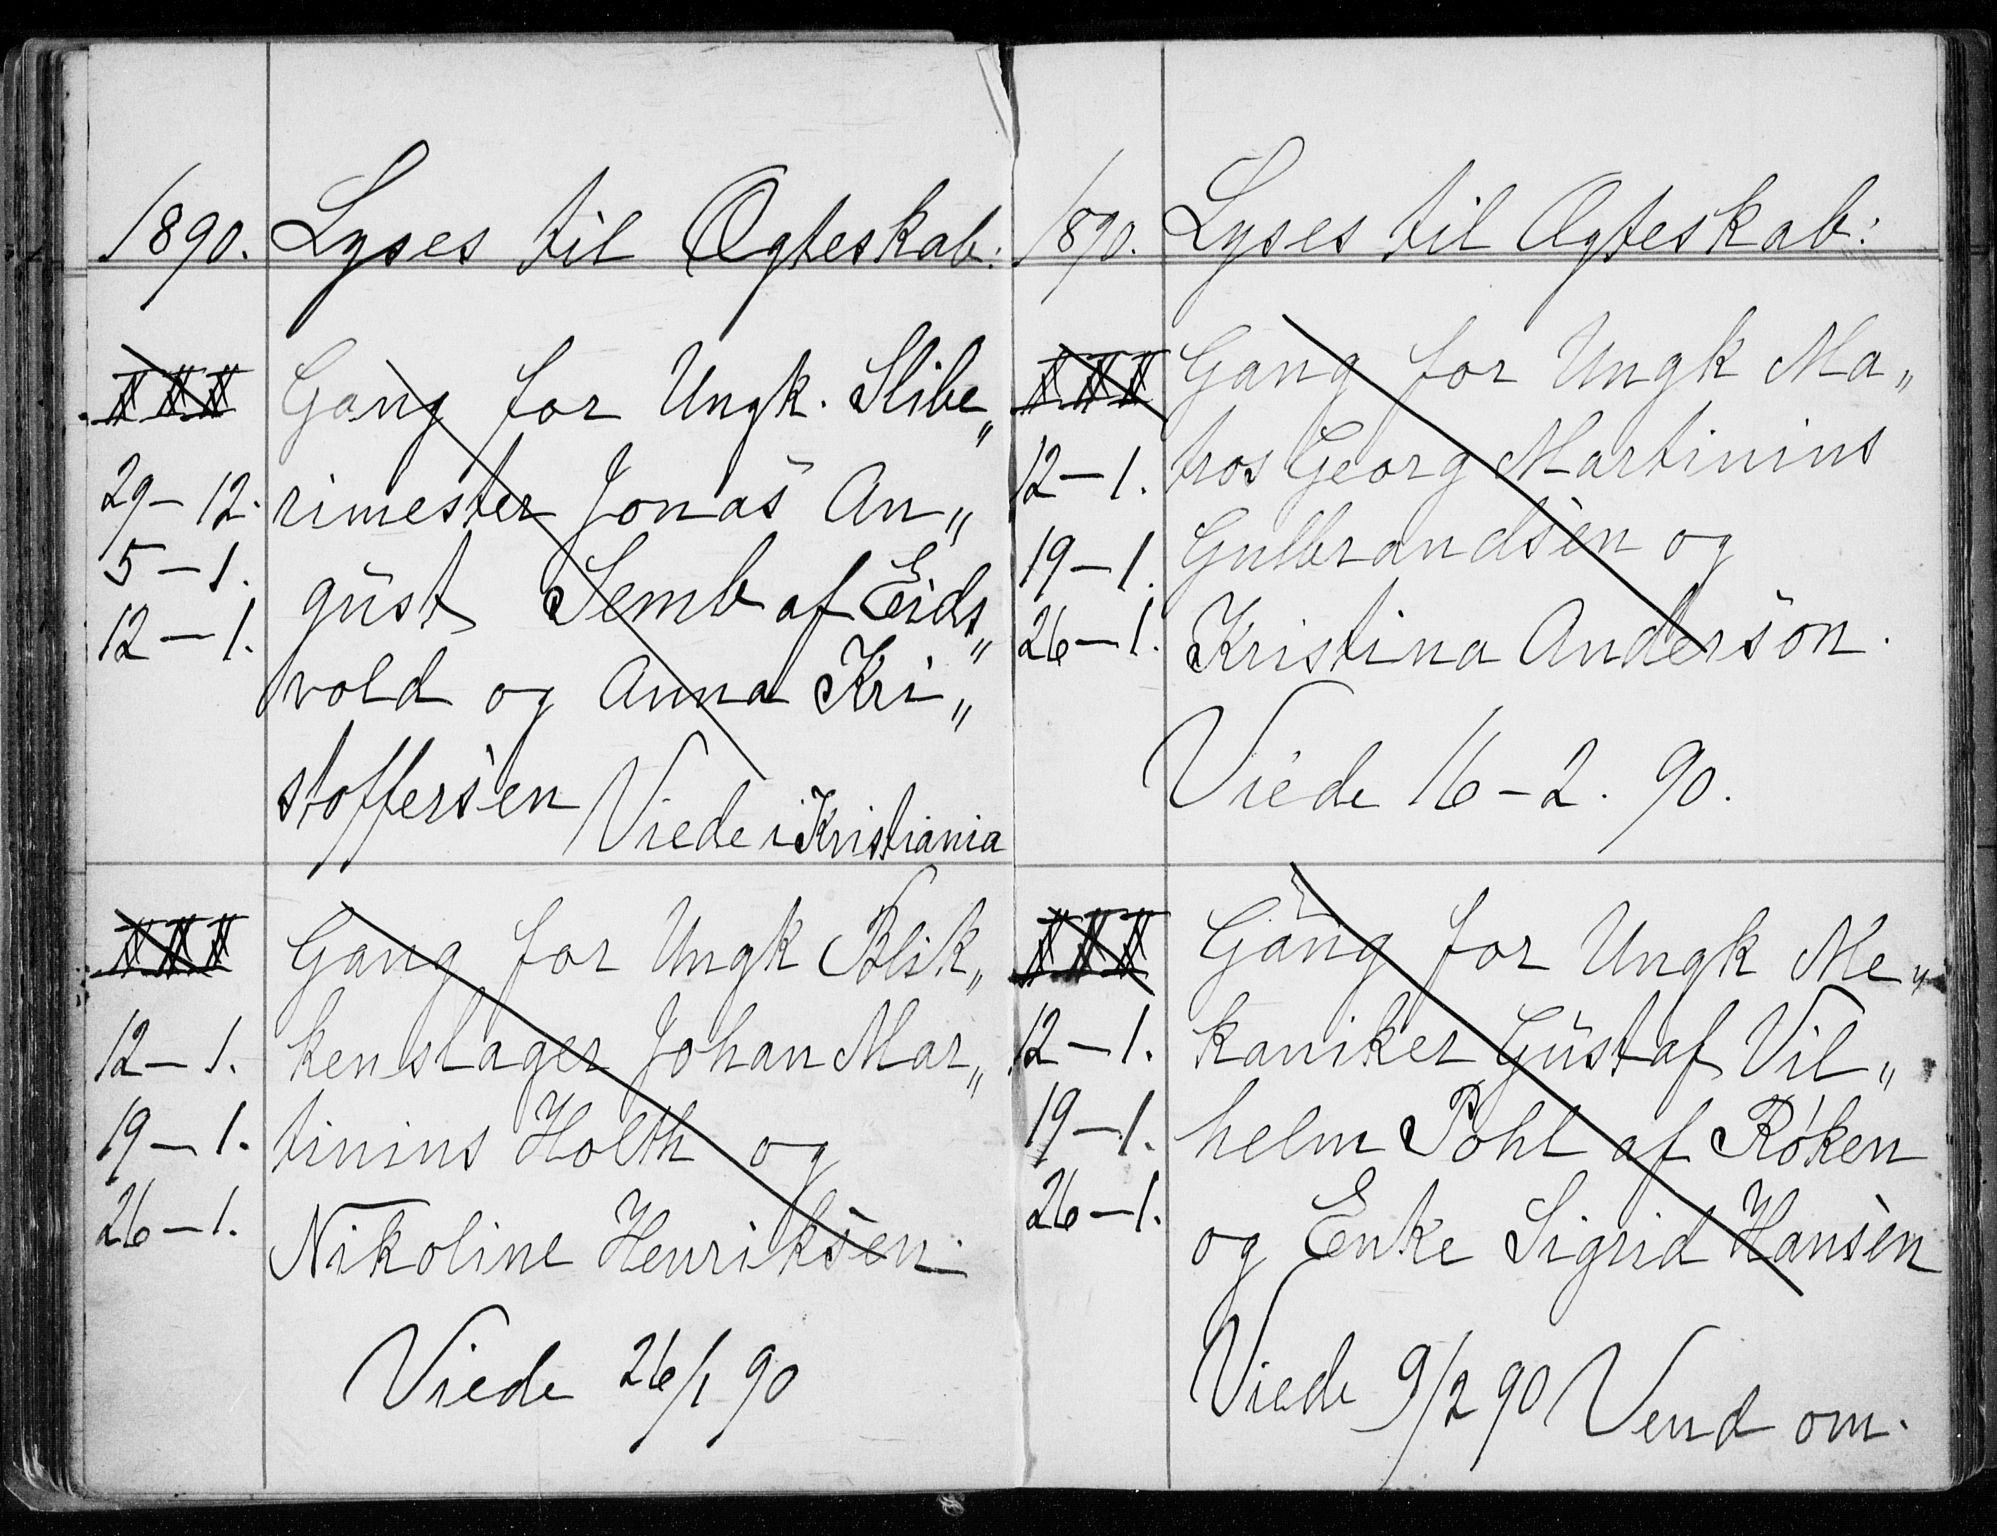 1890. Lyses til Ægteskab:
I II III Gang for Ungk. Slibe„
29 – 12. rimester Jonas Au„
5 – 1. gust Semb af Eids„
12 – 1. vold og Anna Kri„
stoffersen Viede i Kristiania
I II III Gang for Ungk Blik„
12 – 1. kenslager Johan Mar„
19 – 1. tinius Holth og
26 – 1. Nikoline Henriksen.
Viede 26/1 90
1890. Lyses til Ægteskab:
I II III Gang for Ungk Ma„
12 – 1. tros Georg Martinius
19 – 1. Gulbrandsen og
26 – 1. Kristina Anderson.
Viede 16 – 2. 90.
I II III Gang for Ungk Me„
12 – 1. kaniker Gustaf Vil„
19 – 1. helm Pohl af Røken
26 – 1. og Enke Sigrid Hansen
Viede 9/2 90 Vend om.